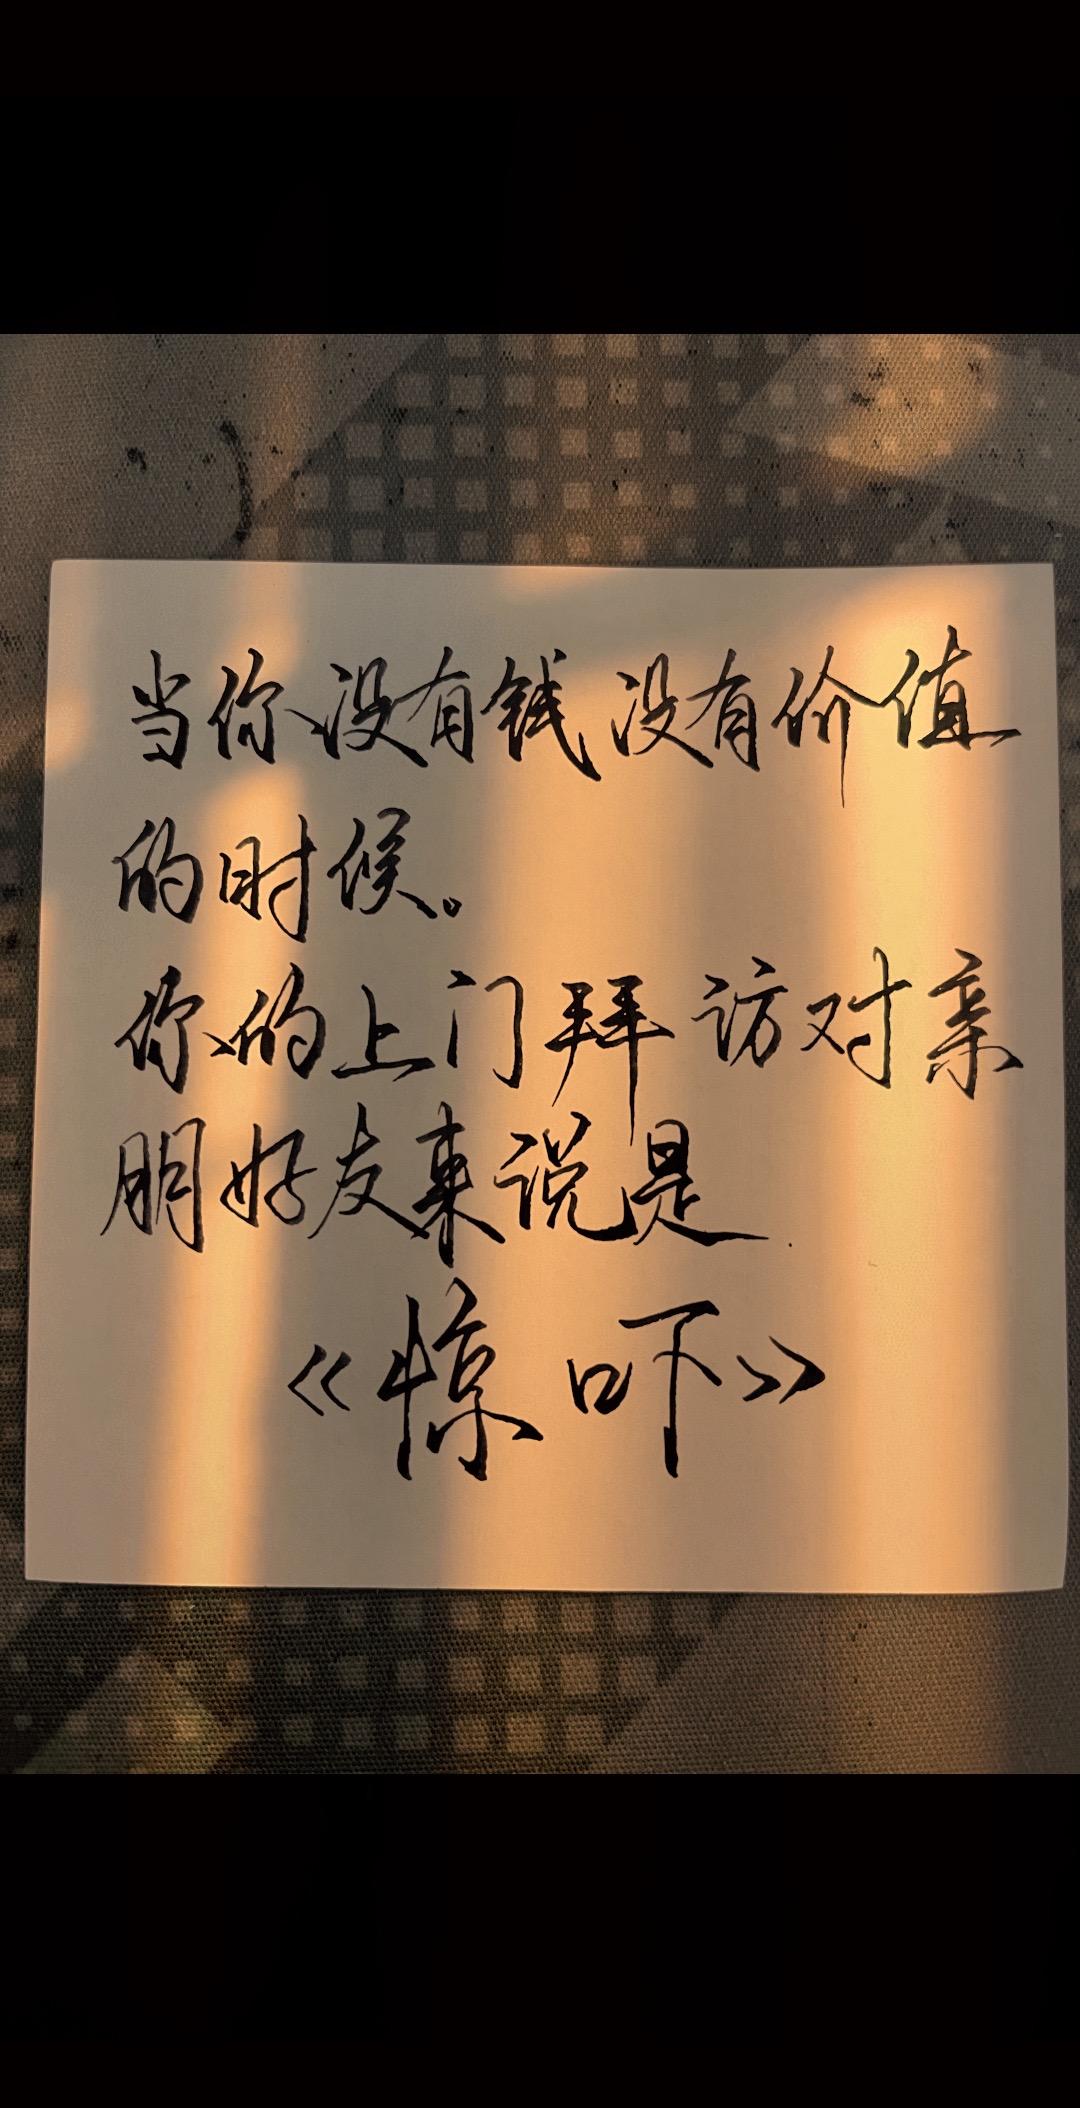 当你没有钱没有价值
的时候。
你的上门拜访对亲
朋好友来说是
《惊吓》